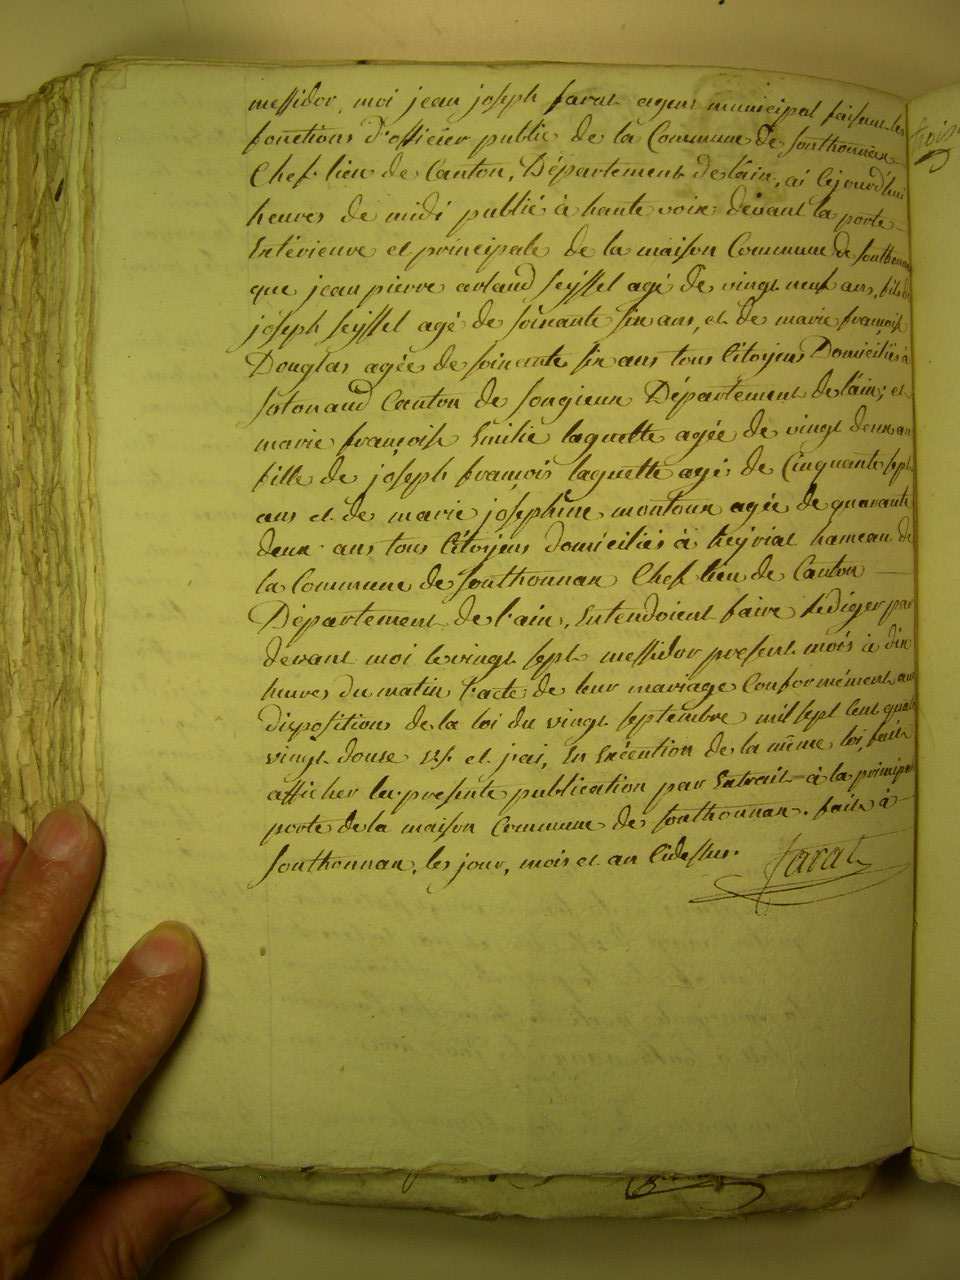 messidor, moi jean joseph farat agent municipal faisant les
fonctions d'officier public de la Commune de Sonthonnax
Chef lieu de Canton, Département de l'ain, ai cejourd'hui
heures de midi publié à haute voix devant la porte
Extérieure et principale de la maison Commune de Sonthonnax
que jean pierre artaud Seyssel agé de vingt neuf ans, fils de
joseph Seyssel agé de soixante six ans, et de marie françoise
Douglas agée de soixante six ans tous Citoyens Domiciliés à
Sotonaud Canton de Songieux Département de l'ain; et
marie françoise Emilie laguette agée de vingt deux ans
fille de joseph françois laguette agé de Cinquante sept
ans et de marie josephine montoux agée de quarante
deux ans tous Citoyens domiciliés à heyriat hameau de
la Commune de Sonthonnax Chef lieu de Canton
Département de l'ain, Entendoient faire Rediger par
devant moi le vingt sept messidor present mois à dix
heures du matin l'acte de leur mariage Conformément aux
disposition de la loi du vingt septembre mil sept Cent quatre
vingt douse et j'ai, En Exécution de la même loi, fait
afficher la presente publication par Extrait à la principale
porte de la maison Commune de Sonthonnax. fait à
Sonthonnax, les jour, mois et an Cidessus.
farat